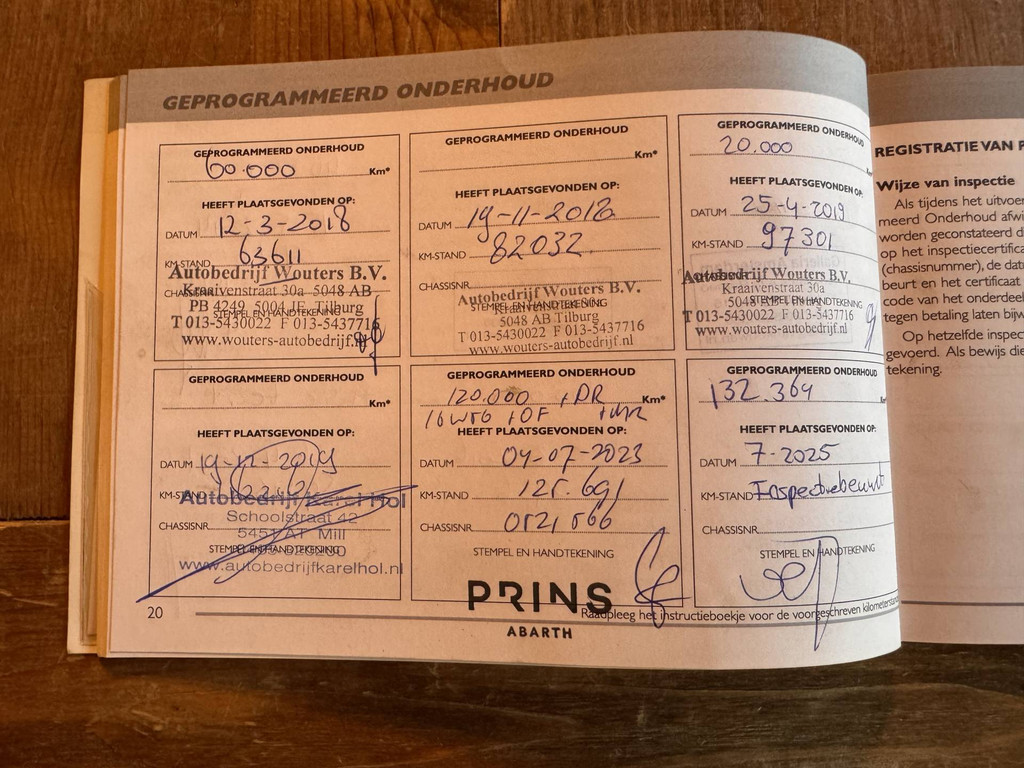 GEPROGRAMMEERD ONDERHOUD
GEPROGRAMMEERD ONDERHOUD
60.000 Km*
HEEFT PLAATSGEVONDEN OP:
DATUM 12-3-2018
KM-STAND 63611
Autobedrijf Wouters B.V.
Kraaivenstraat 30a 5048 AB
PB 4249 5004 JE Tilburg
STEMPEL EN HANDTEKENING
T 013-5430022 F 013-5437716
www.wouters-autobedrijf.nl
GEPROGRAMMEERD ONDERHOUD
Km*
HEEFT PLAATSGEVONDEN OP:
DATUM 19-11-2018
KM-STAND 82032
CHASSISNR.
Autobedrijf Wouters B.V.
STEMPEL EN HANDTEKENING
5048 AB Tilburg
T 013-5430022 F 013-5437716
www.wouters-autobedrijf.nl
GEPROGRAMMEERD ONDERHOUD
20.000
HEEFT PLAATSGEVONDEN OP:
DATUM 25-4-2019
KM-STAND 97301
Autobedrijf Wouters B.V.
Kraaivenstraat 30a
5048 AB Tilburg
STEMPEL EN HANDTEKENING
T 013-5430022 F 013-5437716
www.wouters-autobedrijf.nl
GEPROGRAMMEERD ONDERHOUD
Km*
HEEFT PLAATSGEVONDEN OP:
DATUM 19-12-2019
KM-STAND
Autobedrijf Karel Hol
Schoolstraat 42
CHASSISNR.
5451 AT Mill
STEMPEL EN HANDTEKENING
www.autobedrijfkarelhol.nl
GEPROGRAMMEERD ONDERHOUD
120.000 + DR Km*
+ OF
HEEFT PLAATSGEVONDEN OP:
DATUM 04-07-2023
KM-STAND 125.691
CHASSISNR.
STEMPEL EN HANDTEKENING
PRINS
ABARTH
GEPROGRAMMEERD ONDERHOUD
132.364
HEEFT PLAATSGEVONDEN OP:
DATUM 7-2025
KM-STAND Inspectiebeurt
CHASSISNR.
STEMPEL EN HANDTEKENING
20
Raadpleeg het instructieboekje voor de voorgeschreven
REGISTRATIE VAN
Wijze van inspectie
Als tijdens het
meerd Onderhoud
worden geconstateerd
op het
(chassisnummer), de
beurt en het certificaat
code van het
tegen betaling laten
Op hetzelfde
gevoerd. Als bewijs
tekening.